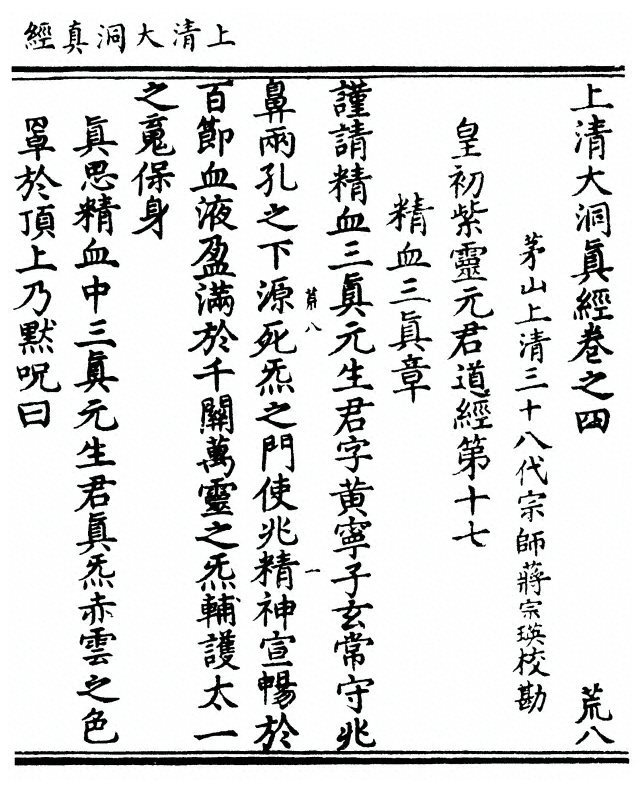 上清大洞真經
上清大洞眞經卷之四
荒八
茅山上清三十八代宗師蔣宗瑛校勘
皇初紫靈元君道經第十七
精血三眞章
謹請精血三眞元生君字黄寧子玄常守兆
鼻兩孔之下源死炁之門使兆精神宣暢於
第八
一
百節血液盈滿於千關萬靈之炁輔護太一
之䰟保身
眞思精血中三眞元生君眞炁赤雲之色
罩於頂上乃默呪曰